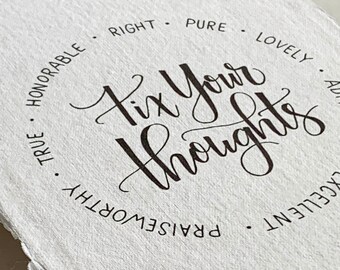 TRUE • HONORABLE • RIGHT • PURE • LOVELY •
EXCELLENT • PRAISEWORTHY •
Fix Your
thoughts